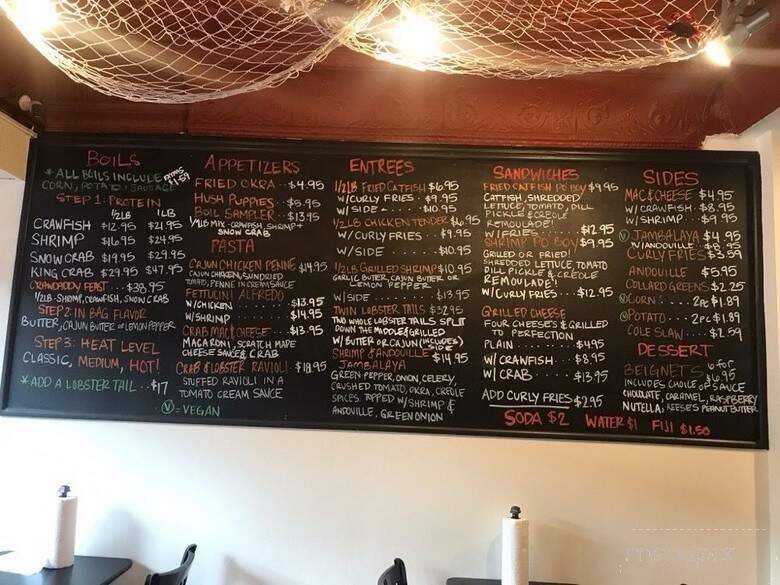 BOILS
* ALL BOILS INCLUDE
CORN, POTATO, SAUSAGE
STEP 1: PROTEIN
1/2LB 1LB
CRAWFISH $12.95 $21.95
SHRIMP $16.95 $24.95
SNOW CRAB $19.95 $29.95
KING CRAB $29.95 $47.95
CRAWDADDY FEAST ... $38.95
1/2LB - SHRIMP, CRAWFISH, SNOW CRAB
STEP 2: IN BAG FLAVOR
BUTTER, CAJUN BUTTER or LEMON PEPPER
STEP 3: HEAT LEVEL
CLASSIC, MEDIUM, HOT!
* ADD A LOBSTER TAIL ... $17
APPETIZERS
FRIED OKRA .. $4.95
HUSH PUPPIES .. $5.95
BOIL SAMPLER .. $13.95
1/4LB MIX - CRAWFISH, SHRIMP +
SNOW CRAB
PASTA
CAJUN CHICKEN PENNE $14.95
CAJUN CHICKEN, SUNDRIED
TOMATO, PENNE IN CREAM SAUCE
FETTUCINI ALFREDO
W/CHICKEN ... $13.95
W/SHRIMP ... $14.95
CRAB MAC & CHEESE .. $13.95
MACARONI, SCRATCH MADE
CHEESE SAUCE & CRAB
CRAB & LOBSTER RAVIOLI $18.95
STUFFED RAVIOLI IN A
TOMATO CREAM SAUCE
V = VEGAN
ENTREES
1/2LB FRIED CATFISH $6.95
W/CURLY FRIES .. $9.95
W/SIDE ... $10.95
1/2LB CHICKEN TENDER $6.95
W/CURLY FRIES .. $9.95
W/SIDE ... $10.95
1/2LB GRILLED SHRIMP $10.95
GARLIC BUTTER, CAJUN BUTTER OR
LEMON PEPPER
W/SIDE ... $13.95
TWIN LOBSTER TAILS $32.95
TWO WHOLE LOBSTER TAILS SPLIT
DOWN THE MIDDLE & GRILLED
W/ BUTTER OR CAJUN (INCLUDES SIDE)
SHRIMP & ANDOUILLE $14.95
JAMBALAYA
GREEN PEPPER, ONION, CELERY,
CRUSHED TOMATO, OKRA, CREOLE
SPICES. TOPPED W/SHRIMP &
ANDOUILLE, GREEN ONION
SANDWICHES
FRIED CATFISH PO BOY $9.95
CATFISH, SHREDDED
LETTUCE, TOMATO, DILL
PICKLE & CREOLE
REMOULADE!
W/FRIES ... $12.95
SHRIMP PO BOY $9.95
GRILLED OR FRIED!
SHREDDED LETTUCE, TOMATO
DILL PICKLE & CREOLE
REMOULADE!
W/CURLY FRIES ... $12.95
GRILLED CHEESE
FOUR CHEESES & GRILLED
TO PERFECTION
PLAIN ... $4.95
W/ CRAWFISH ... $8.95
W/ CRAB ... $13.95
ADD CURLY FRIES $2.95
SIDES
MAC & CHEESE $4.95
W/CRAWFISH .. $8.95
W/SHRIMP .. $9.95
V JAMBALAYA $4.95
W/ANDOUILLE $8.95
CURLY FRIES $3.59
ANDOUILLE $5.95
COLLARD GREENS $2.25
V CORN .... 2pc $1.89
V POTATO ... 2pc $1.89
COLE SLAW ... $2.59
DESSERT
BEIGNETS 6 for $6.95
INCLUDES CHOICE of SAUCE
CHOCOLATE, CARAMEL, RASPBERRY
NUTELLA, REESE'S PEANUT BUTTER
SODA $2 WATER $1 FIJI $1.50